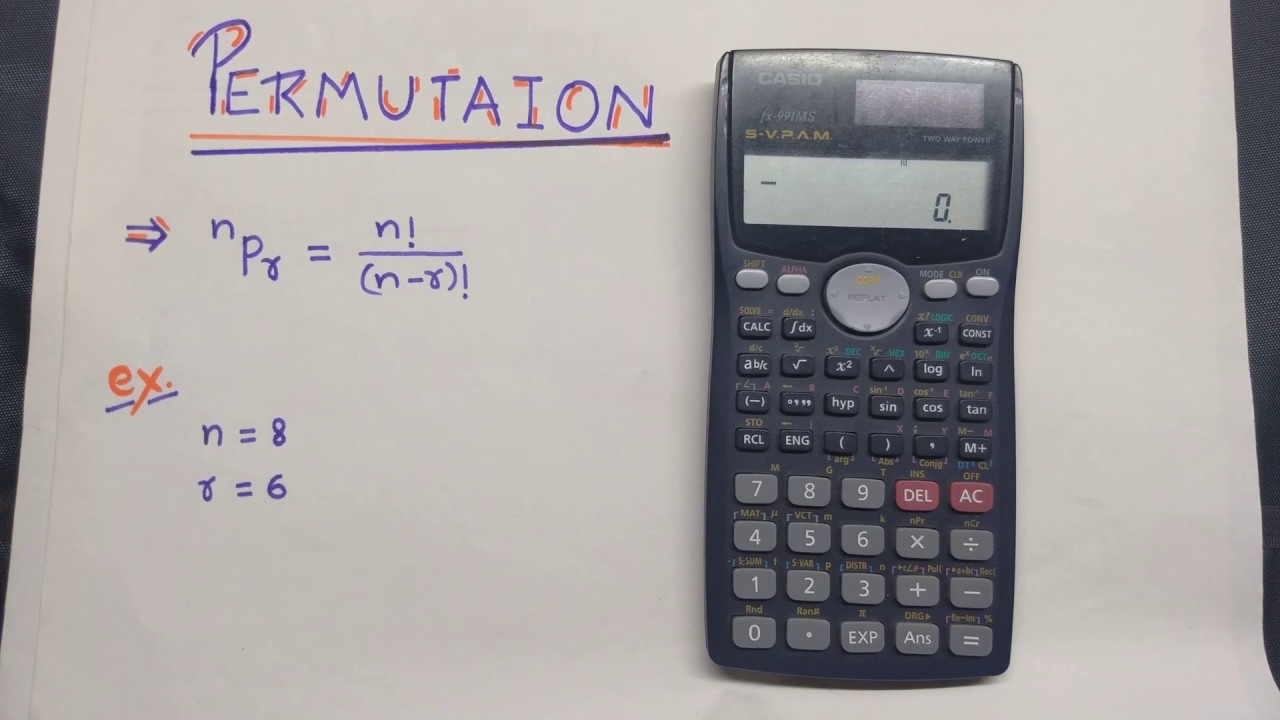 PERMUTAION
⇒ nPr = n! / (n-r)!
ex.
n = 8
r = 6
CASIO
fx-991MS
S-V.P.A.M.
TWO WAY POWER
0.
SHIFT ALPHA MODE CLR ON
COPY
REPLAY
SOLVE = d/dx : x! LOGIC CONV
CALC ∫dx x⁻¹ CONST
d/c ³√ x³ DEC ˣ√ HEX 10ˣ BIN eˣ OCT e
ab/c √ x² ^ log ln
∠ A ← B C sin⁻¹ D cos⁻¹ E tan⁻¹ F
(−) °,,, hyp sin cos tan
STO ← i X ; Y M− M
RCL ENG ( ) , M+
arg Abs Conjg DT CL
M G T INS OFF
7 8 9 DEL AC
MAT μ VCT m k nPr nCr
4 5 6 × ÷
S-SUM f S-VAR p DISTR n ▶r∠θ Pol( ▶a+bi Rec(
1 2 3 + −
Rnd Ran# π DRG▶ Re↔Im %
0 . EXP Ans =